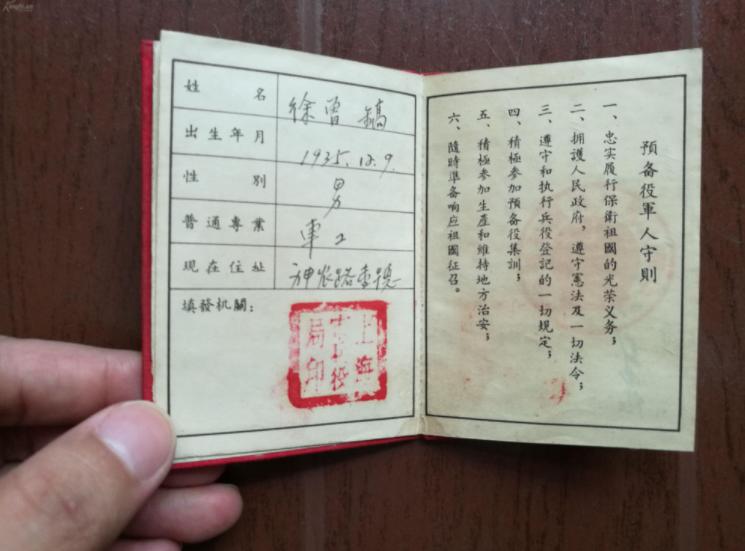 姓名
徐曾鎬
出生年月
1935.12.9.
性別
男
普通專業
車工
現在住址
神農路李德
填發机關:
上海
兵役
局印
預备役軍人守則
一、忠实履行保衛祖國的光荣义务;
二、拥護人民政府,遵守憲法及一切法令;
三、遵守和执行兵役登記的一切規定;
四、積極參加預备役集訓;
五、積極參加生產和維持地方治安;
六、隨時準备响应祖國征召。